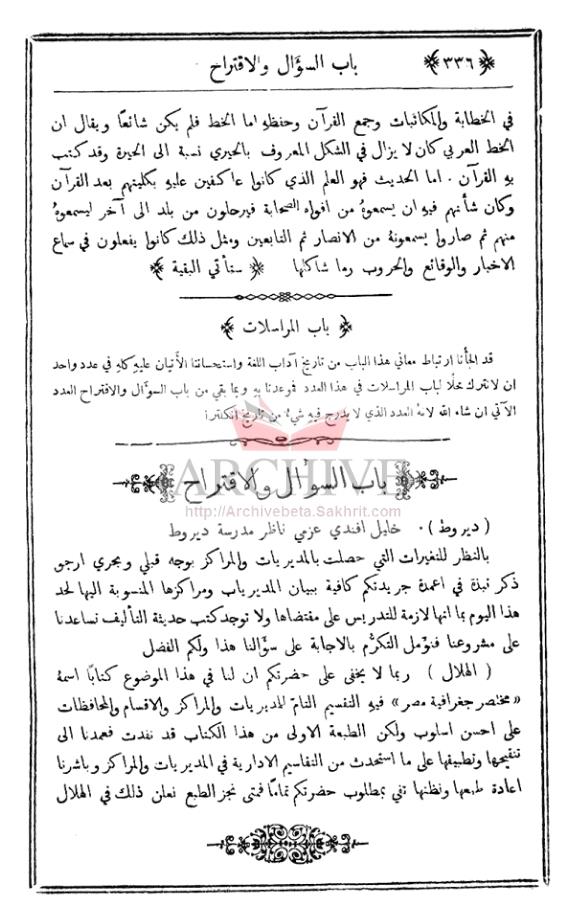 ﴿٣٣٦﴾ باب السؤال والاقتراح
في الخطابة والمكاتبات وجمع القرآن وحفظهِ اما الخط فلم يكن شائعًا ويقال ان
الخط العربي كان لا يزال في الشكل المعروف بالحيري نسبة الى الحيرة وقد كتب
بهِ القرآن . اما الحديث فهو العلم الذي كانوا عاكفين عليهِ بكليتهم بعد القرآن
وكان شأنهم فيهِ ان يسمعوهُ من افواه الصحابة فيرحلون من بلد الى آخر ليسمعوهُ
منهم ثم صاروا يسمعونهُ من الانصار ثم التابعين ومثل ذلك كانوا يفعلون في سماع
الاخبار والوقائع والحروب وما شاكلها ﴿ ستأتي البقية ﴾
﴿ باب المراسلات ﴾
قد الجأنا ارتباط معاني هذا الباب من تاريخ آداب اللغة واستحساننا الأتيان عليهِ كلهِ في عدد واحد
ان لا نترك محلًا لباب المراسلات في هذا العدد فموعدنا بهِ وبما بقي من باب السؤال والاقتراح العدد
الآتي ان شاء الله لانهُ العدد الذي لا يدرج فيهِ شيءٌ من تاريخ انكلترا
باب السؤال والاقتراح
ARCHIVE
http://Archivebeta.Sakhrit.com
( ديروط ) . خليل افندي عزمي ناظر مدرسة ديروط
بالنظر للتغيرات التي حصلت بالمديريات والمراكز بوجه قبلي وبحري ارجو
ذكر نبذة في اعمدة جريدتكم كافية ببيان المديريات ومراكزها المنسوبة اليها لحد
هذا اليوم بما انها لازمة للتدريس على مقتضاها ولا توجد كتب حديثة التأليف تساعدنا
على مشروعنا فنؤمل التكرُّم بالاجابة على سؤالنا هذا ولكم الفضل
( الهلال ) ربما لا يخفى على حضرتكم ان لنا في هذا الموضوع كتابًا اسمهُ
«مختصر جغرافية مصر» فيهِ التقسيم التامّ للمديريات والمراكز والاقسام والمحافظات
على احسن اسلوب ولكن الطبعة الاولى من هذا الكتاب قد نفدت فعمدنا الى
تنقيحها وتطبيقها على ما استحدث من التقاسيم الادارية في المديريات والمراكز وباشرنا
اعادة طبعها ونظنها تفي بمطلوب حضرتكم تمامًا فمتى نجز الطبع نعلن ذلك في الهلال